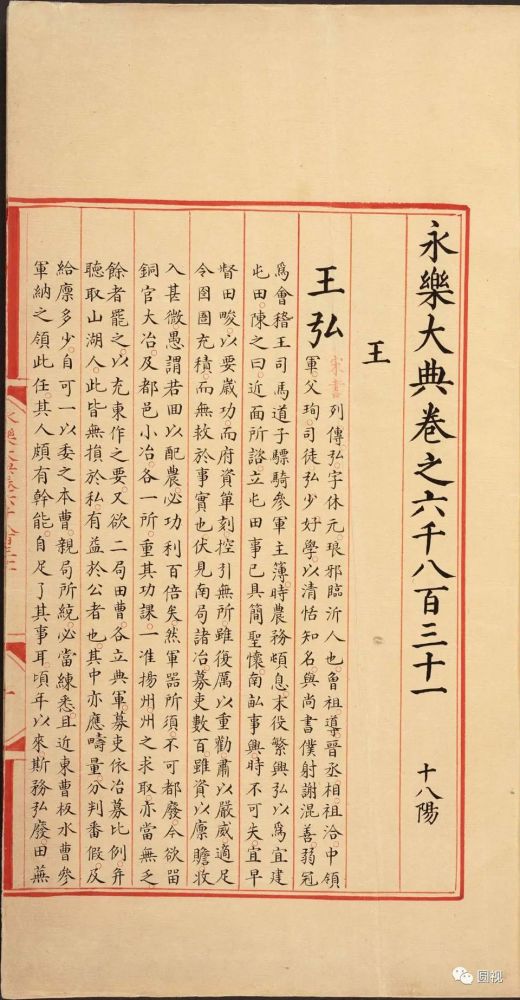 永樂大典卷之六千八百三十一 十八陽
王
王弘
宋書列傳弘字休元琅邪臨沂人也曾祖導晉丞相祖洽中領
軍父珣司徒弘少好學以清恬知名與尚書僕射謝混善弱冠
爲會稽王司馬道子驃騎參軍主簿時農務頓息末役繁興弘以爲宜建
屯田陳之曰近面所諮立屯田事已具簡聖懷南畝事興時不可失宜早
督田畯以要歲功而府資單刻控引無所雖復厲以重勸肅以嚴威適足
令囹圄充積而無救於事實也伏見南局諸冶募吏數百雖資以廩贍收
入甚微愚謂若回以配農必功利百倍矣然軍器所須不可都廢今欲留
銅官大冶及都邑小冶各一所重其功課一准揚州州之求取亦當無乏
餘者罷之以充東作之要又欲二局田曹各立典軍募吏依冶募比例并
聽取山湖人此皆無損於私有益於公者也其中亦應疇量分判番假及
給廩多少自可一以委之本曹親局所統必當練悉且近東曹板水曹參
軍納之領此任其人頗有幹能自足了其事耳頃年以來斯務弘廢田蕪
圆视